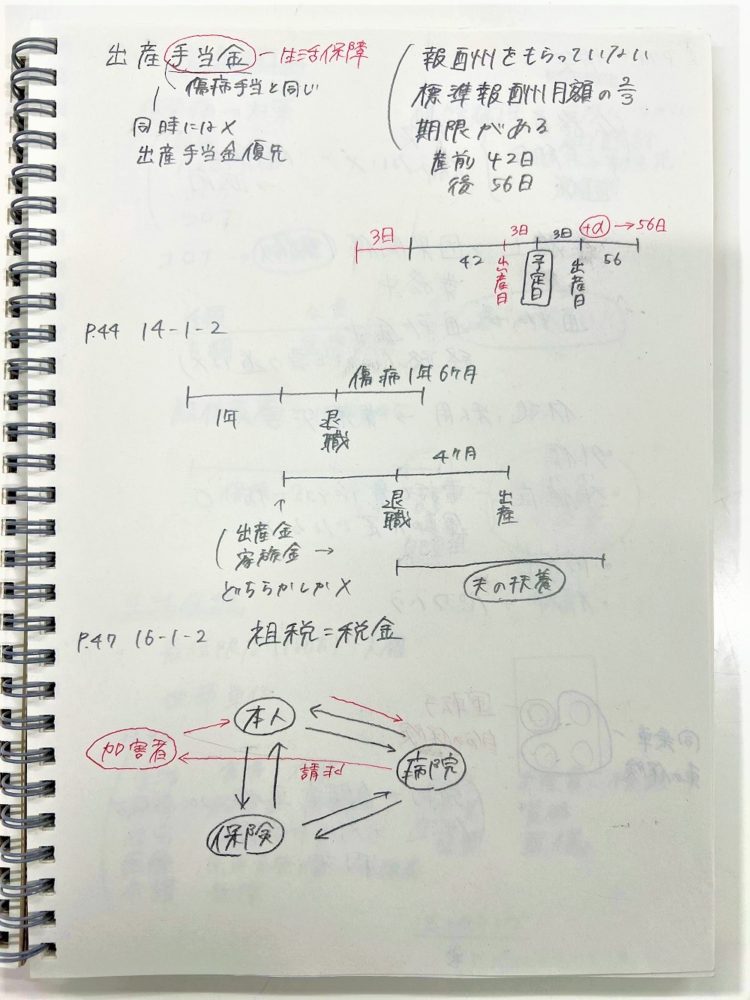 出産手当金 ー生活保障
傷病手当と同じ
同時には×
出産手当金優先
報酬をもらっていない
標準報酬月額の2/3
期限がある
産前 42日
後 56日
3日
3日
3日
+α → 56日
42
出産日
予定日
出産日
56
P.44 14-1-2
傷病 1年6ヶ月
1年
退職
4ヶ月
↑
退職
出産
出産金
家族金 →
どちらかしか×
夫の扶養
P.47 16-1-2 租税=税金
本人
加害者
請求
病院
保険